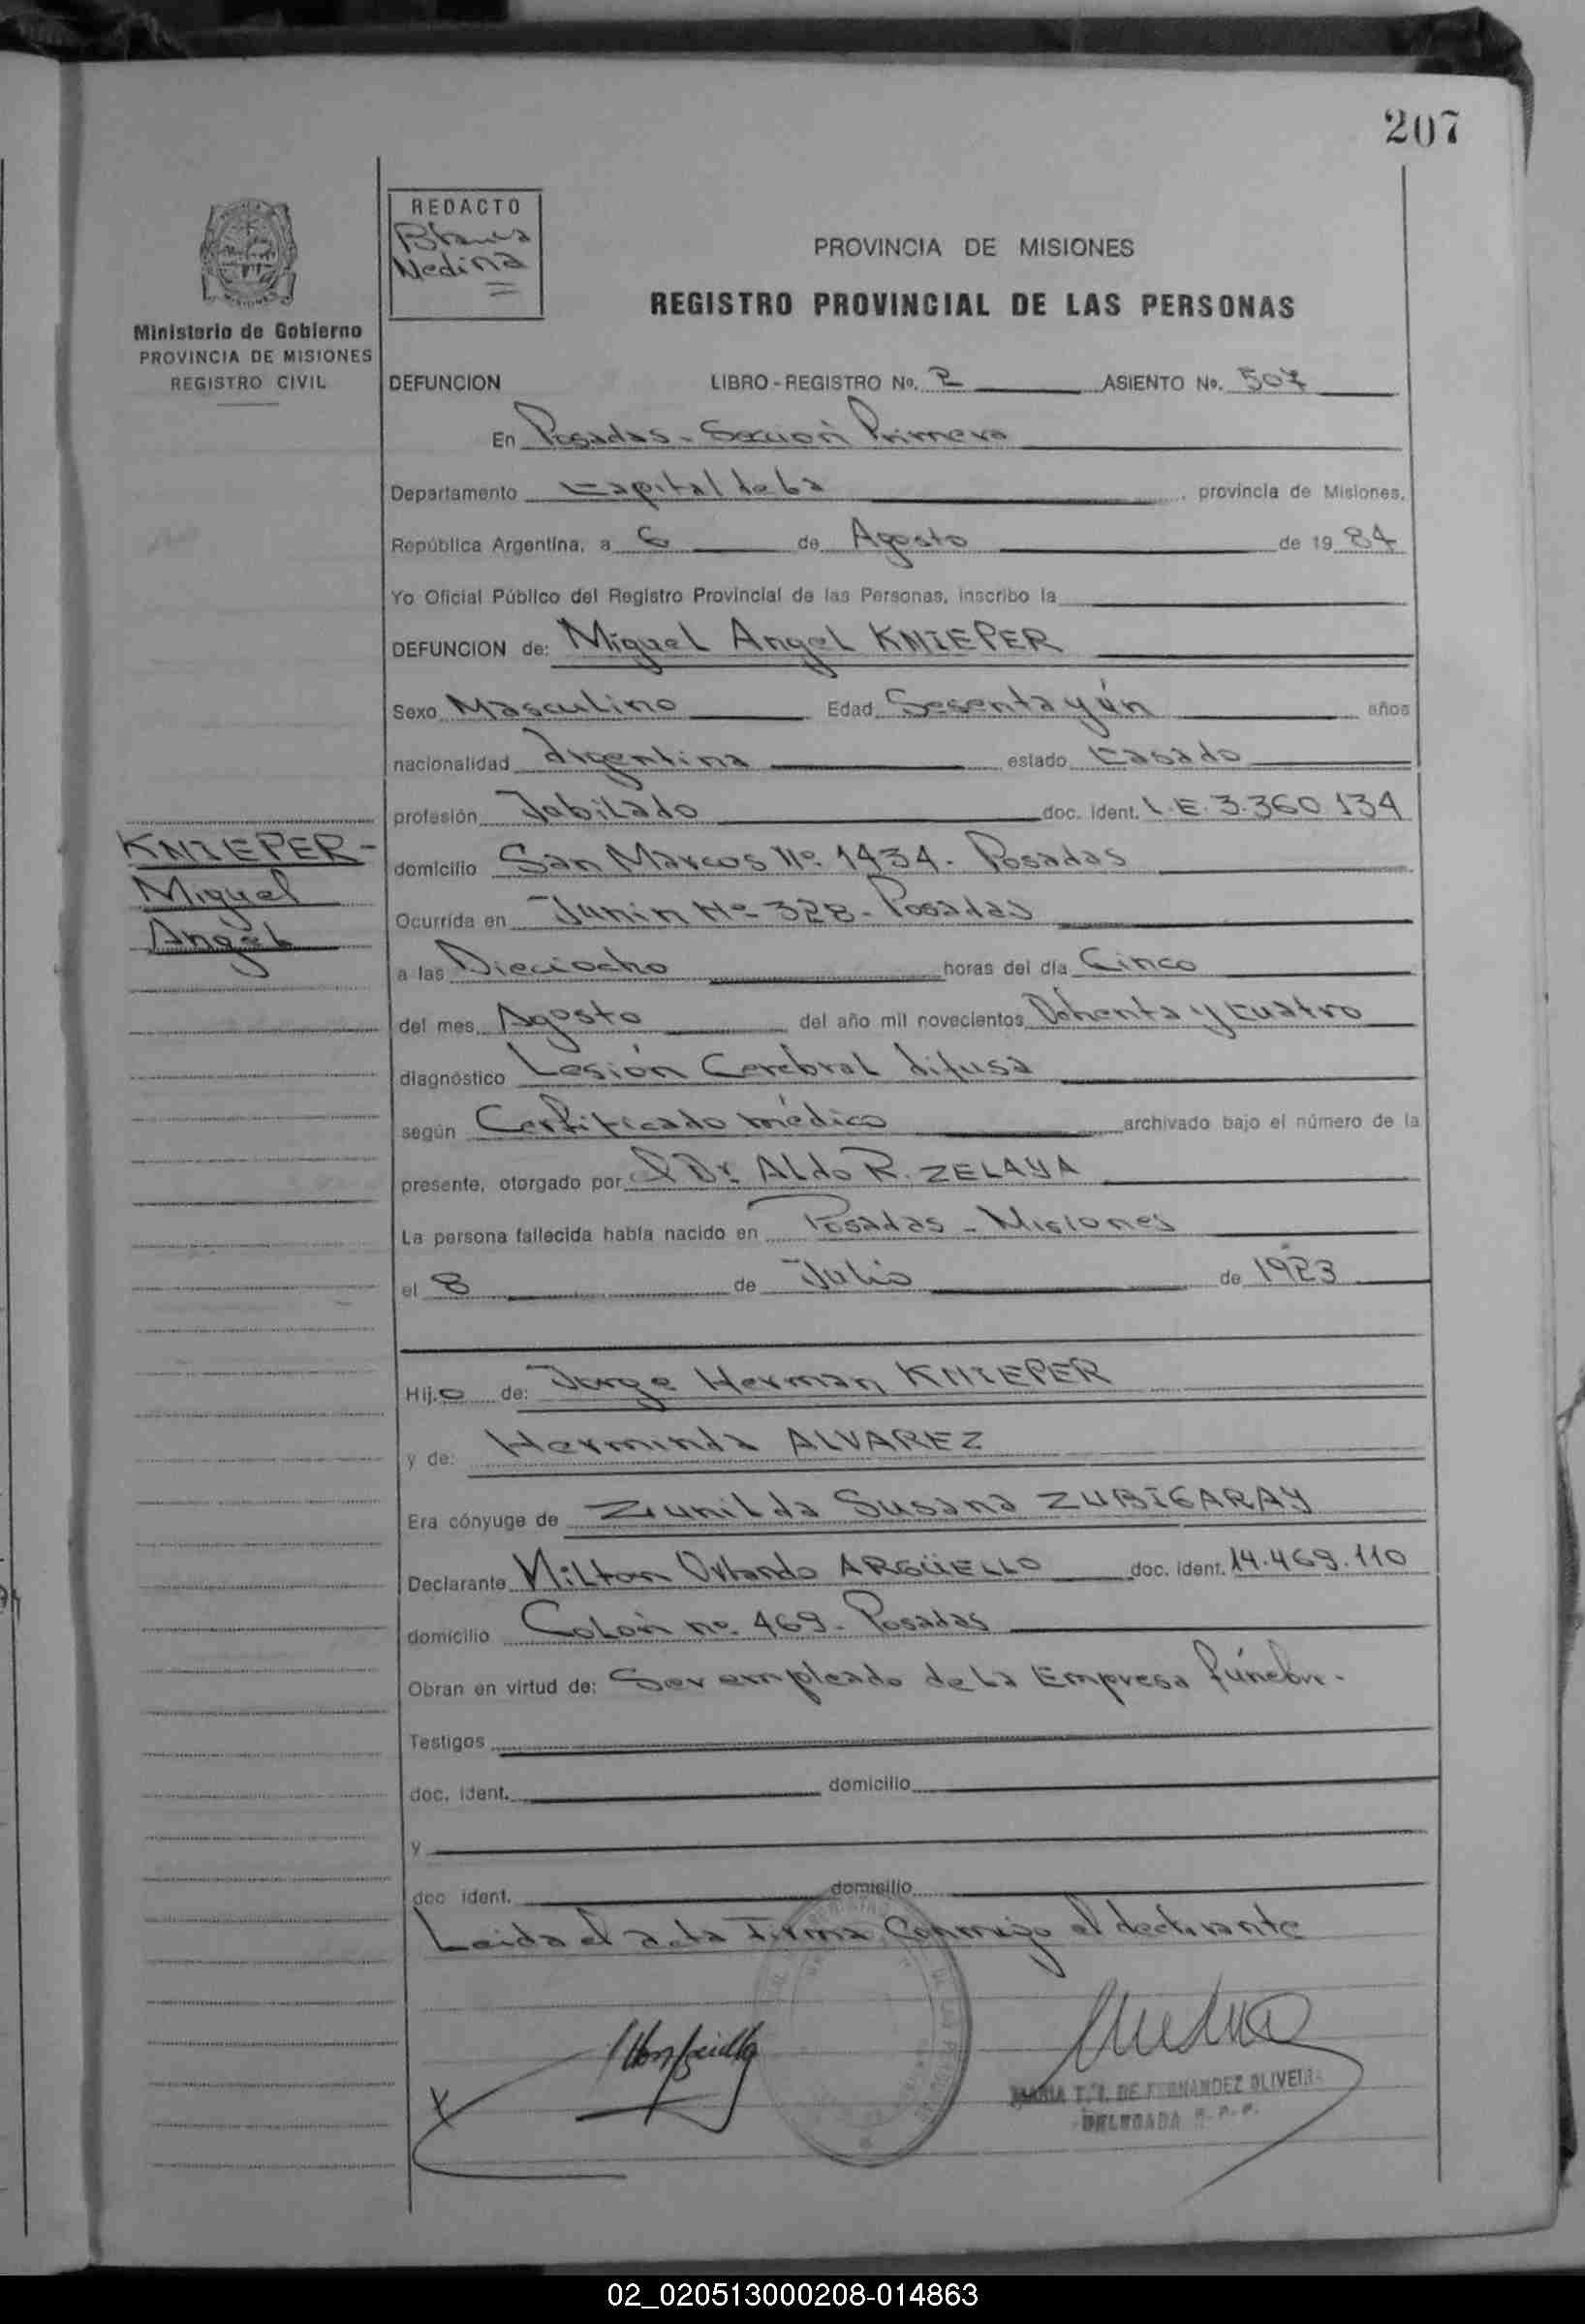 207
REDACTO
Blanca
Medina
Ministerio de Gobierno
PROVINCIA DE MISIONES
REGISTRO CIVIL
PROVINCIA DE MISIONES
REGISTRO PROVINCIAL DE LAS PERSONAS
DEFUNCION LIBRO-REGISTRO No. 2 ASIENTO No. 507
En Posadas - Sección Primera
Departamento Capital de La provincia de Misiones,
República Argentina, a 6 de Agosto de 1984
Yo Oficial Público del Registro Provincial de las Personas, inscribo la
DEFUNCION de: Miguel Angel KNIEPER
Sexo Masculino Edad Sesenta y ún años
nacionalidad Argentina estado Casado
profesión Jubilado doc. ident. L.E. 3.360.134
KNIEPER-
Miguel
Angel
domicilio San Marcos Nº 1434. Posadas
Ocurrida en Junin Nº 328 - Posadas
a las Dieciocho horas del día Cinco
del mes Agosto del año mil novecientos Ochenta y cuatro
diagnóstico Lesión Cerebral difusa
según Certificado médico archivado bajo el número de la
presente, otorgado por el Dr. Aldo R. ZELAYA
La persona fallecida había nacido en Posadas - Misiones
el 8 de Julio de 1923
Hijo de: Jorge Herman KNIEPER
y de: Herminda ALVAREZ
Era cónyuge de Zunilda Susana ZUBIGARAY
Declarante Milton Orlando ARGÜELLO doc. ident. 14.469.110
domicilio Colón nº 469 - Posadas
Obran en virtud de: Ser empleado de La Empresa fúnebr.
Testigos
doc. ident. domicilio
y
doc ident. domicilio
Leida el acta firma conmigo el declarante
MARIA T. DE FERNANDEZ OLIVEIRA
DELEGADA R.P.P.
02_020513000208-014863